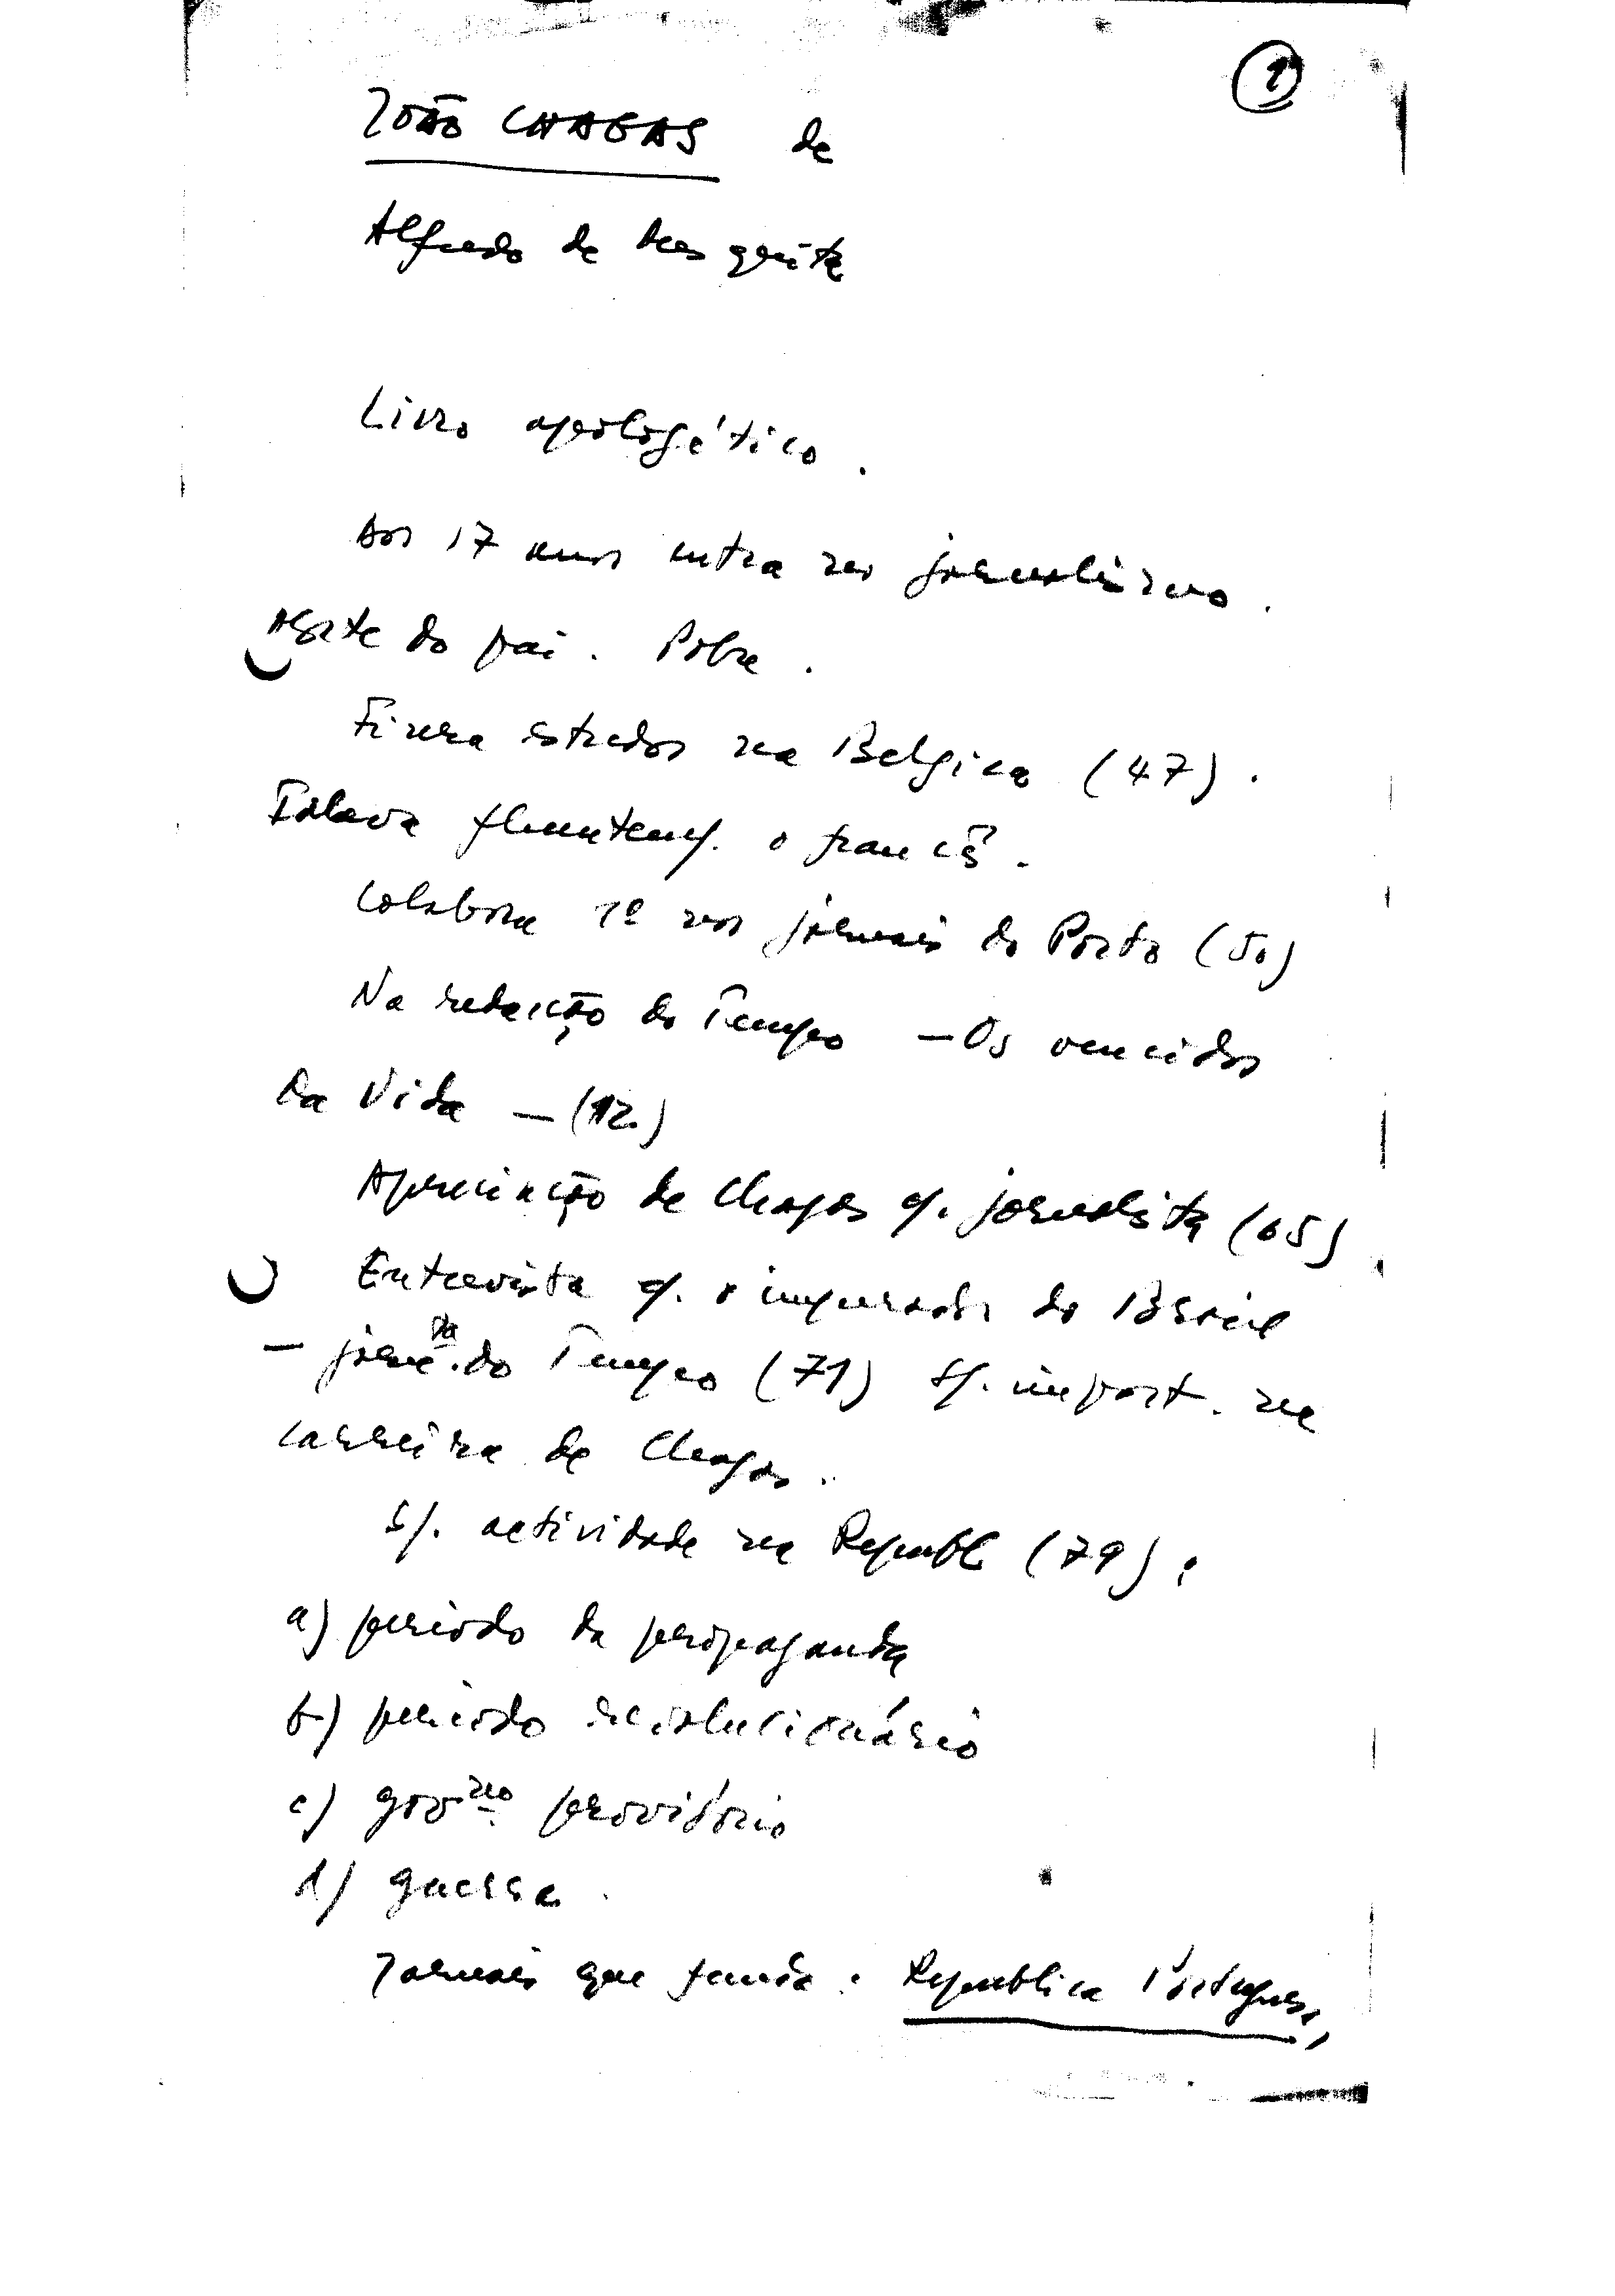 1
JOÃO CHAGAS de
Alfredo de Mesquita
Livro apologético.
Aos 17 anos entra no jornalismo.
Morte do pai. Pobre.
Fizera estudos na Belgica (47).
Falava fluentem/. o francês.
Colabora 1º nos jornais do Porto (50)
Na redacção do Tempo — Os vencidos
da Vida — (12.)
Apreciação de Chagas c/. jornalista (65)
Entrevista c/. o imperador do Brasil
— jornta. do Tempo (71) s/. import. na
carreira de Chagas.
S/. actividade na Republ (79):
a) periodo da propaganda
b) periodo revolucionário
c) govrno. provisório
d) guerra.
Jornais que funda: Republica Portuguesa,